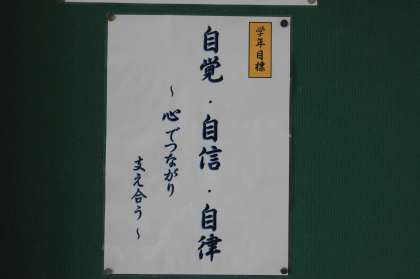 学年目標
自覚・自信・自律
～心でつながり
支え合う～